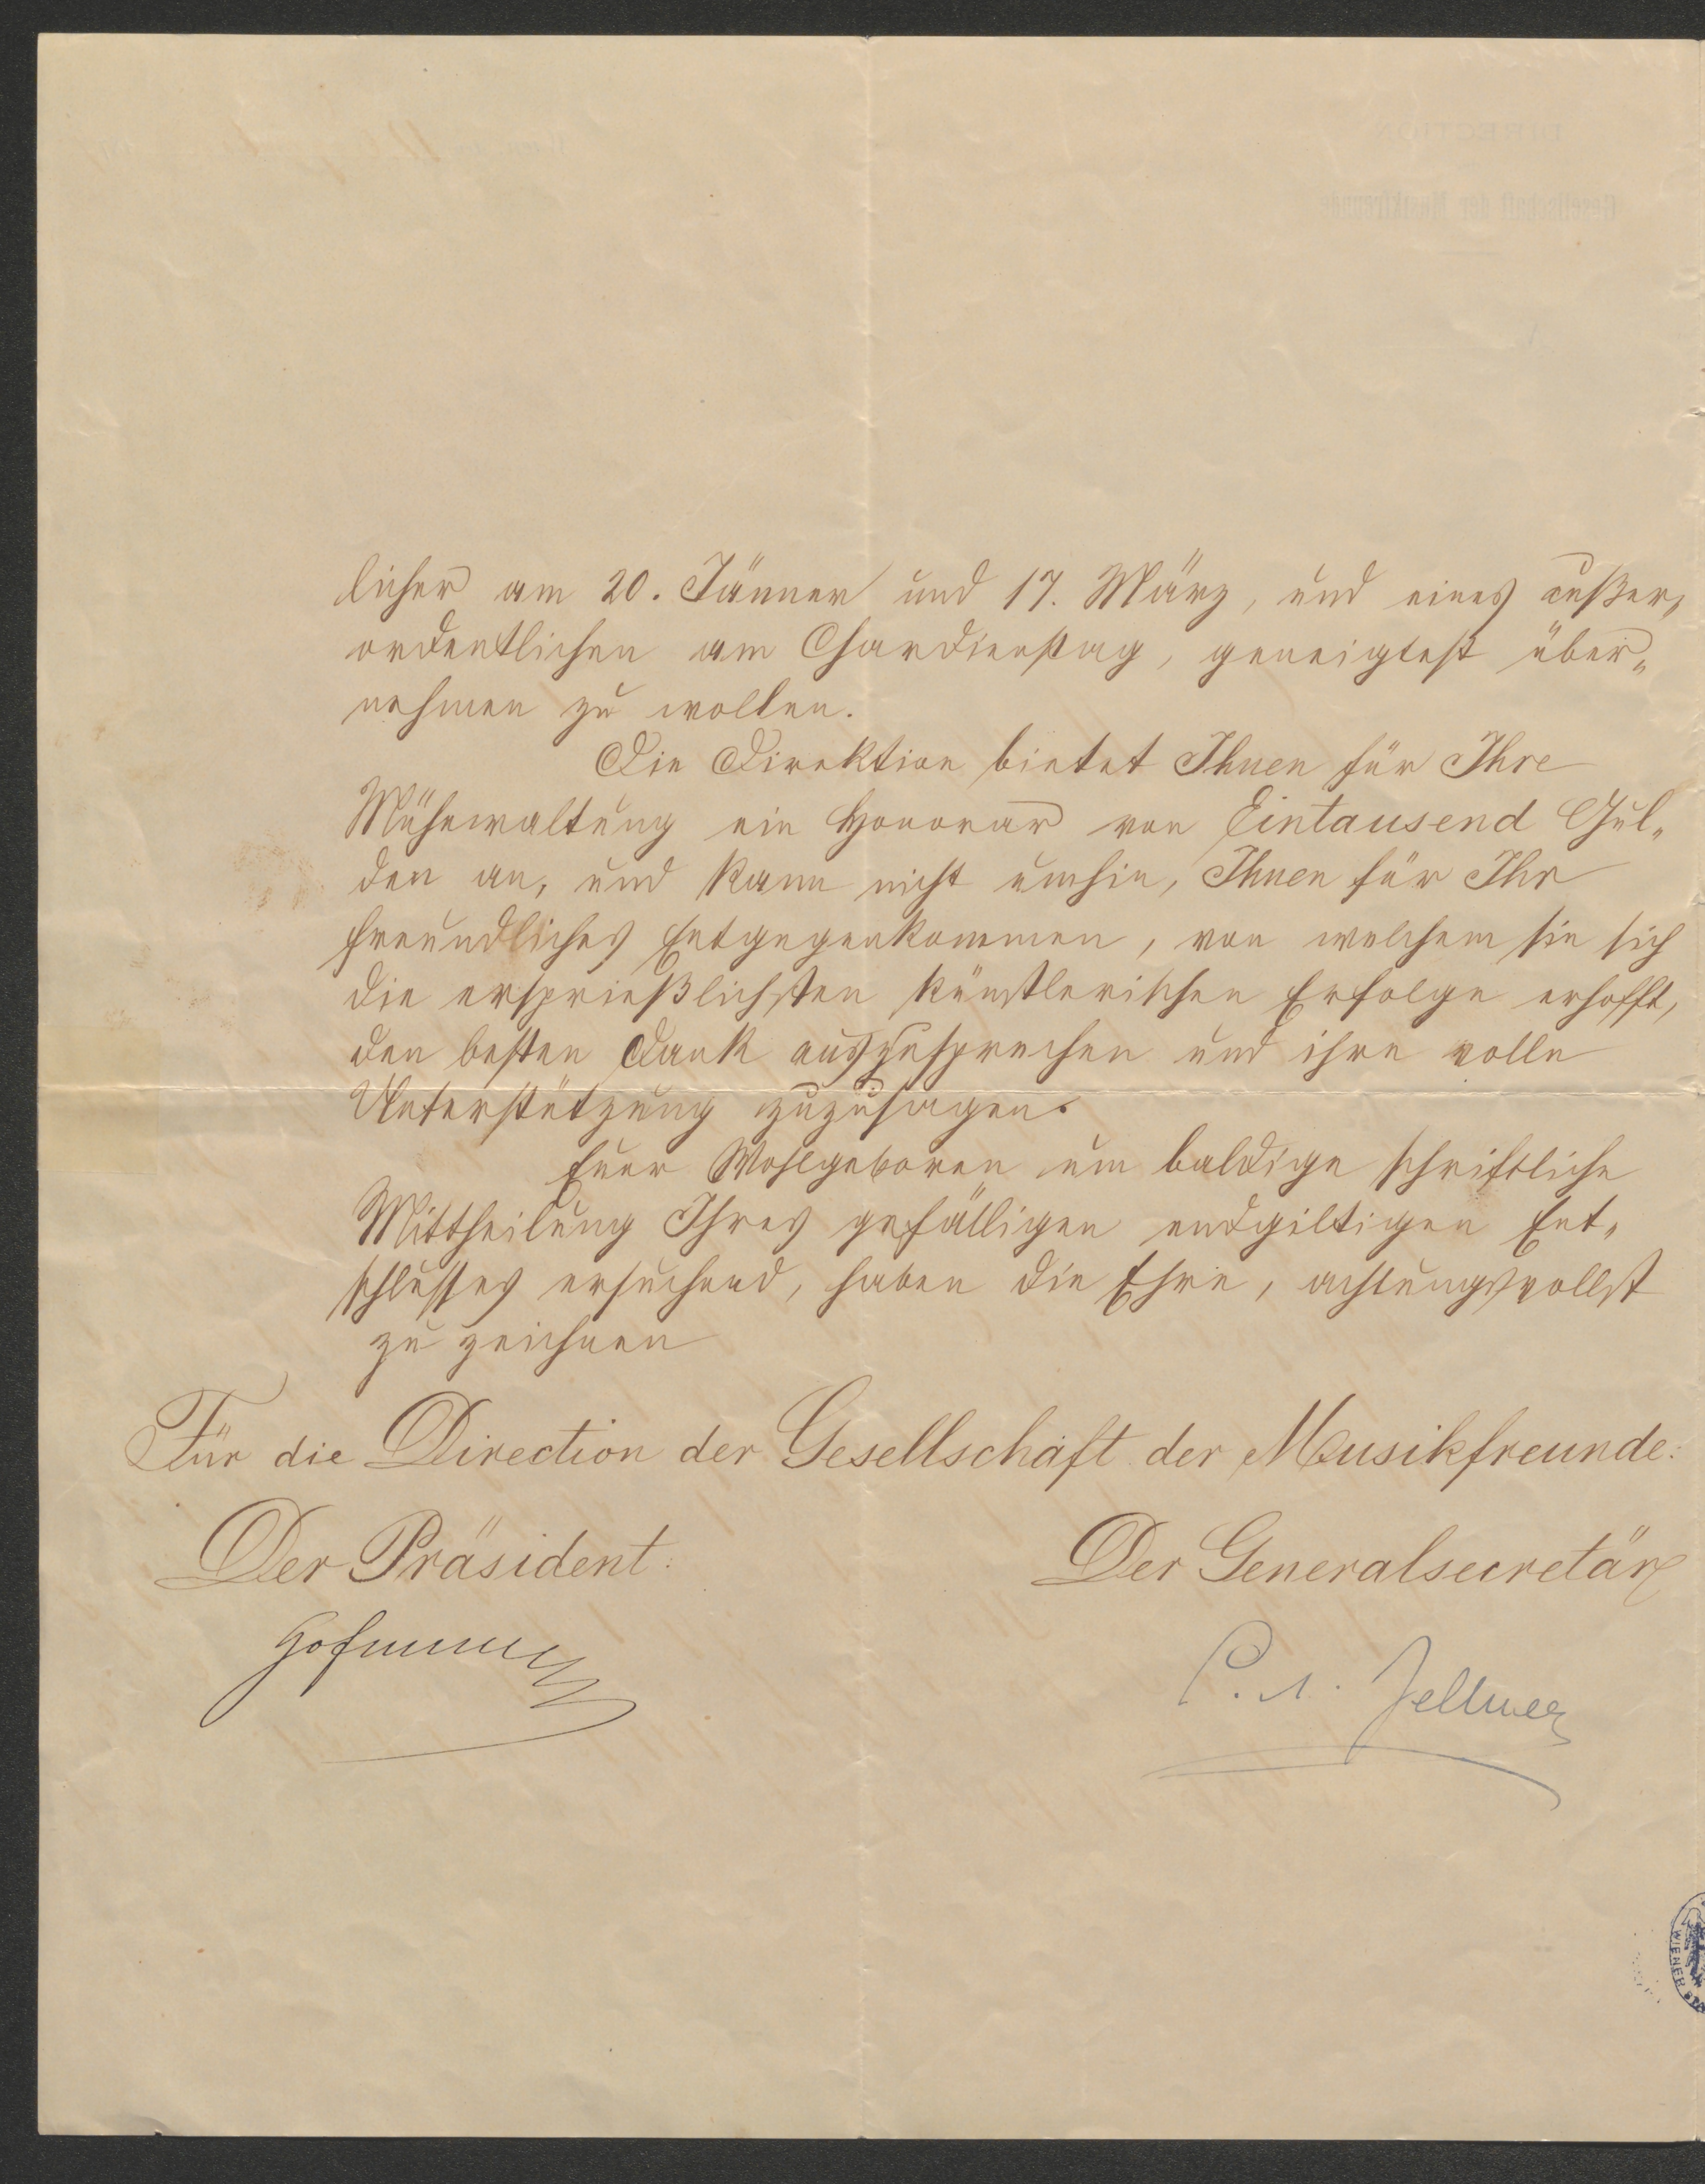 licher am 20. Jänner und 17. März, und eines außer„
ordentlichen am Chardienstag, geneigtest über„
nehmen zu wollen.
Die Direktion bietet Ihnen für Ihre
Mühewaltung ein Honorar von Eintausend Gul„
den an, und kann nicht umhin, Ihnen für Ihr
freundliches Entgegenkommen, von welchem sie sich
die ersprießlichsten künstlerischen Erfolge erhofft,
den besten Dank auszusprechen und ihre volle
Unterstützung zuzusagen.
Euer Wohlgeboren um baldige schriftliche
Mittheilung Ihres gefälligen endgiltigen Ent„
schlusses ersuchend, haben die Ehre, achtungsvollst
zu zeichnen
Für die Direction der Gesellschaft der Musikfreunde:
Der Präsident:
Der Generalsecretär
Hofmann
Zellner
WIENER